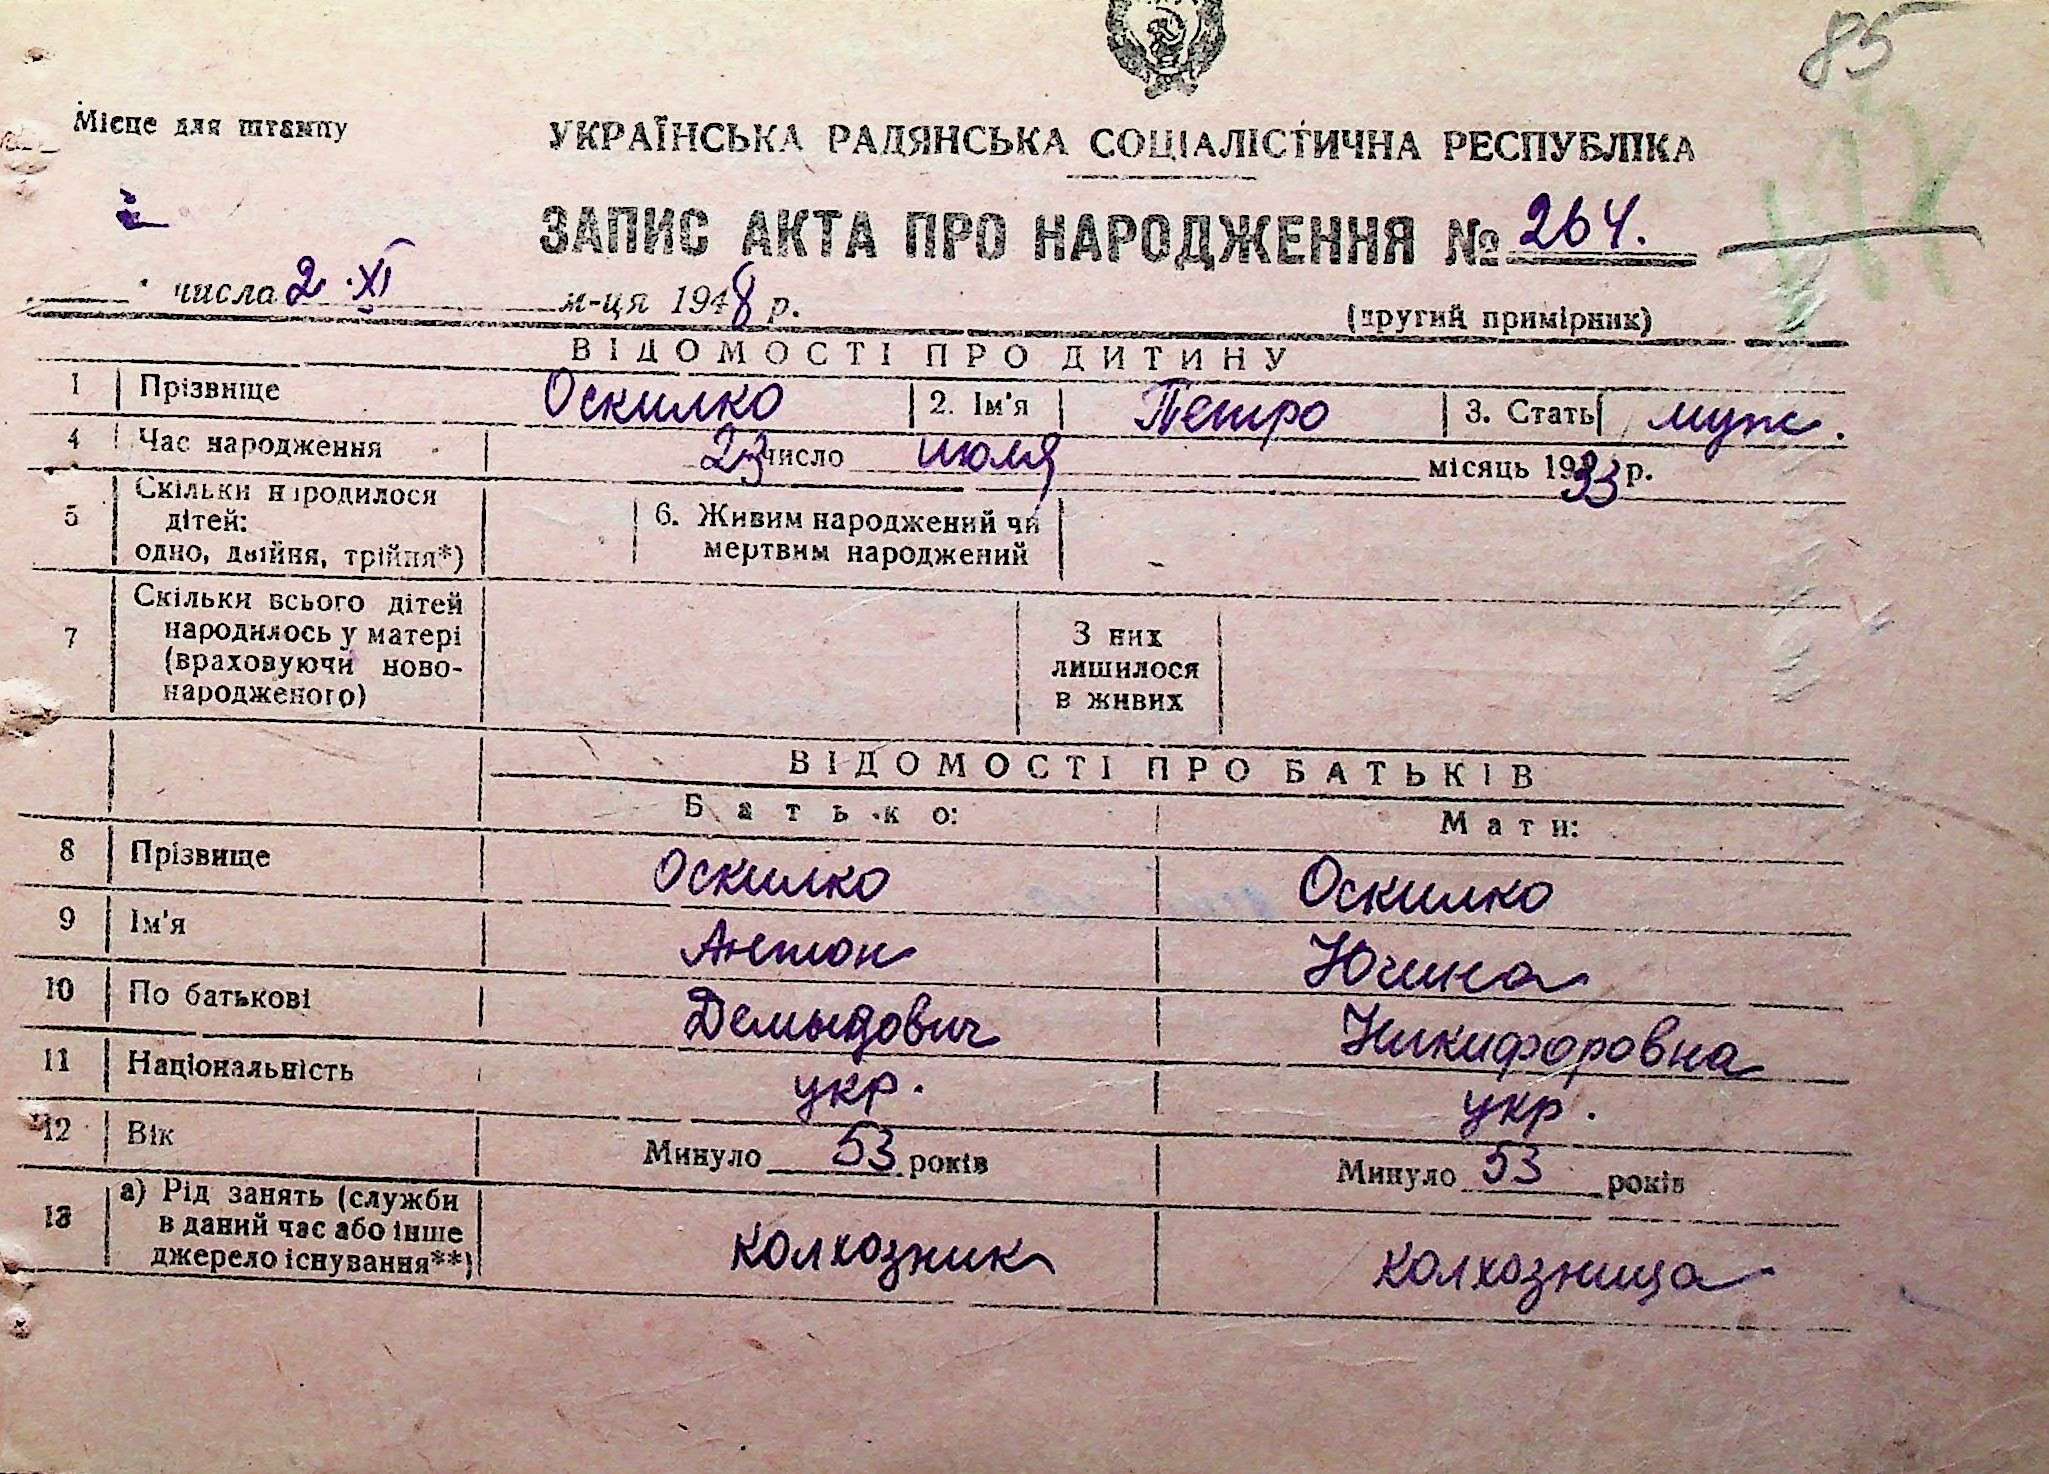 85
Місце для штампу
УКРАЇНСЬКА РАДЯНСЬКА СОЦІАЛІСТИЧНА РЕСПУБЛІКА
ЗАПИС АКТА ПРО НАРОДЖЕННЯ № 264.
числа 2 XI м-ця 1948 р.
(другий примірник)
ВІДОМОСТІ ПРО ДИТИНУ
1 Прізвище Оскилко 2. Ім'я Петро 3. Стать муж.
4 Час народження 23 число июля місяць 1933 р.
5 Скільки народилося
дітей:
одно, двійня, трійня*)
6. Живим народжений чи
мертвим народжений
7 Скільки всього дітей
народилось у матері
(враховуючи ново-
народженого)
З них
лишилося
в живих
ВІДОМОСТІ ПРО БАТЬКІВ
Батько: Мати:
8 Прізвище Оскилко Оскилко
9 Ім'я Антон Юлина
10 По батькові Демыдович Никифоровна
11 Національність укр. укр.
12 Вік Минуло 53 років Минуло 53 років
13 а) Рід занять (служби
в даний час або інше
джерело існування**)
колхозник колхозница